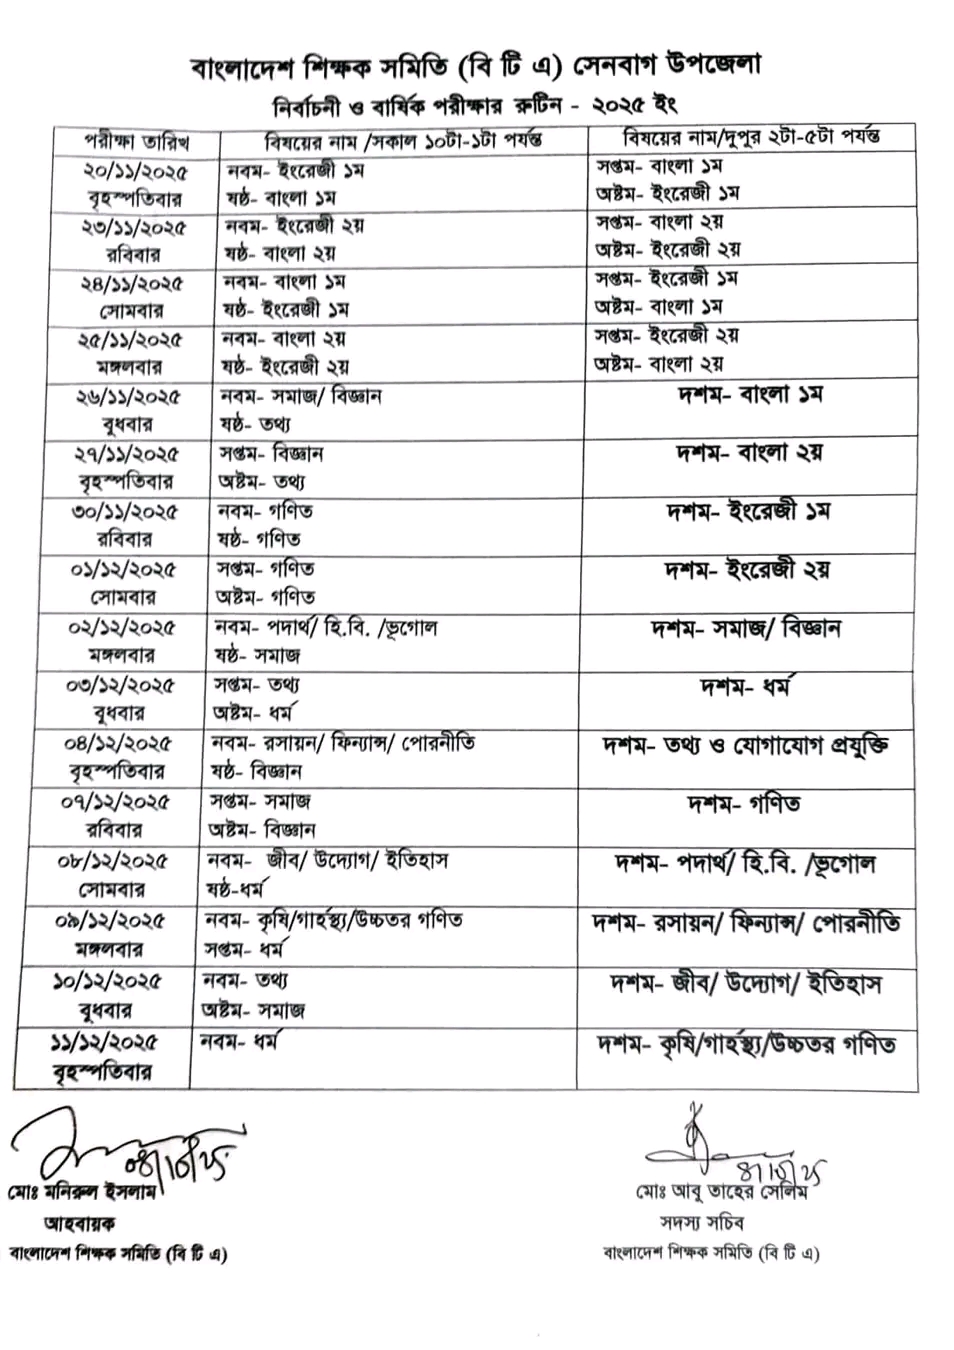 বাংলাদেশ শিক্ষক সমিতি (বি টি এ) সেনবাগ উপজেলা
নির্বাচনী ও বার্ষিক পরীক্ষার রুটিন - ২০২৫ ইং
পরীক্ষা তারিখ বিষয়ের নাম /সকাল ১০টা-১টা পর্যন্ত বিষয়ের নাম/দুপুর ২টা-৫টা পর্যন্ত
২০/১১/২০২৫ নবম- ইংরেজী ১ম সপ্তম- বাংলা ১ম
বৃহস্পতিবার ষষ্ঠ- বাংলা ১ম অষ্টম- ইংরেজী ১ম
২৩/১১/২০২৫ নবম- ইংরেজী ২য় সপ্তম- বাংলা ২য়
রবিবার ষষ্ঠ- বাংলা ২য় অষ্টম- ইংরেজী ২য়
২৪/১১/২০২৫ নবম- বাংলা ১ম সপ্তম- ইংরেজী ১ম
সোমবার ষষ্ঠ- ইংরেজী ১ম অষ্টম- বাংলা ১ম
২৫/১১/২০২৫ নবম- বাংলা ২য় সপ্তম- ইংরেজী ২য়
মঙ্গলবার ষষ্ঠ- ইংরেজী ২য় অষ্টম- বাংলা ২য়
২৬/১১/২০২৫ নবম- সমাজ/ বিজ্ঞান দশম- বাংলা ১ম
বুধবার ষষ্ঠ- তথ্য
২৭/১১/২০২৫ সপ্তম- বিজ্ঞান দশম- বাংলা ২য়
বৃহস্পতিবার অষ্টম- তথ্য
৩০/১১/২০২৫ নবম- গণিত দশম- ইংরেজী ১ম
রবিবার ষষ্ঠ- গণিত
০১/১২/২০২৫ সপ্তম- গণিত দশম- ইংরেজী ২য়
সোমবার অষ্টম- গণিত
০২/১২/২০২৫ নবম- পদার্থ/ হি.বি. /ভূগোল দশম- সমাজ/ বিজ্ঞান
মঙ্গলবার ষষ্ঠ- সমাজ
০৩/১২/২০২৫ সপ্তম- তথ্য দশম- ধর্ম
বুধবার অষ্টম- ধর্ম
০৪/১২/২০২৫ নবম- রসায়ন/ ফিন্যান্স/ পোরনীতি দশম- তথ্য ও যোগাযোগ প্রযুক্তি
বৃহস্পতিবার ষষ্ঠ- বিজ্ঞান
০৭/১২/২০২৫ সপ্তম- সমাজ দশম- গণিত
রবিবার অষ্টম- বিজ্ঞান
০৮/১২/২০২৫ নবম- জীব/ উদ্যোগ/ ইতিহাস দশম- পদার্থ/ হি.বি. /ভূগোল
সোমবার ষষ্ঠ-ধর্ম
০৯/১২/২০২৫ নবম- কৃষি/গার্হস্থ্য/উচ্চতর গণিত দশম- রসায়ন/ ফিন্যান্স/ পোরনীতি
মঙ্গলবার সপ্তম- ধর্ম
১০/১২/২০২৫ নবম- তথ্য দশম- জীব/ উদ্যোগ/ ইতিহাস
বুধবার অষ্টম- সমাজ
১১/১২/২০২৫ নবম- ধর্ম দশম- কৃষি/গার্হস্থ্য/উচ্চতর গণিত
বৃহস্পতিবার
মোঃ মনিরুল ইসলাম মোঃ আবু তাহের সেলিম
আহবায়ক সদস্য সচিব
বাংলাদেশ শিক্ষক সমিতি (বি টি এ) বাংলাদেশ শিক্ষক সমিতি (বি টি এ)